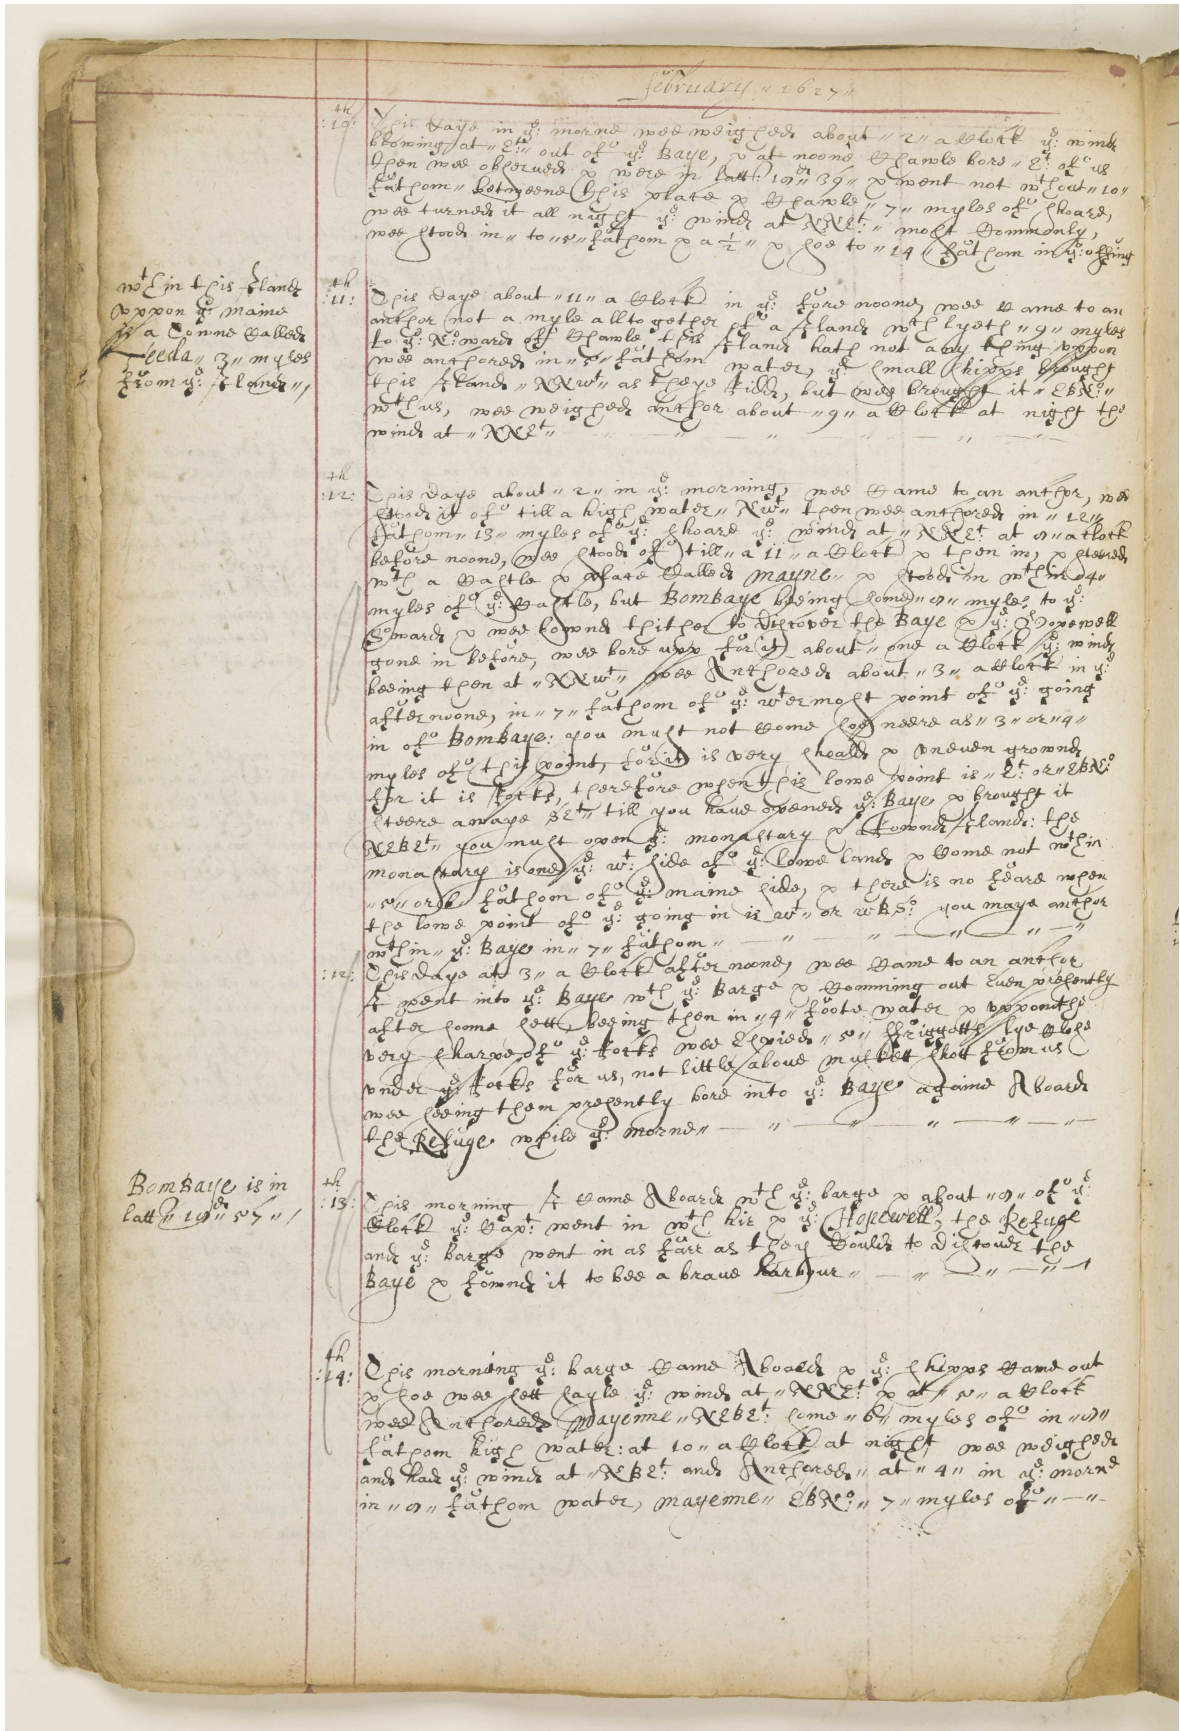 february " 1627 "
th
:10: This daye in ye: morne wee weighed about " 2 " a Clock ye: wind
blowing at " Et: " out of ye: Baye, & at noone Chawle bore " Et: of us
then wee observed & were in latt: 18d " 39 " & went not wthout " 10 "
fathom " betweene this place & Chawle " 7 " myles of shoare,
wee turned it all night ye: wind at NNEt: " most Commonly,
wee stood in " to " 5 " fathom & a ½ " & soe to " 14 " fathom in ye: offing
wthin this Iland
uppon ye: maine
is a Towne Called
3 " myles
from ye: Iland " /
th
:11: This daye about " 11 " a Clock in ye: fore noone, wee Came to an
anchor not a myle alltogether of a Iland wch lyeth " 9 " myles
to ye: No: ward off Chawle, this Iland hath not any thing uppon
wee anchored in " 5 " fathom water, ye: small shipps brought
this Iland " NNWt " as theye Ridd, but wee brought it " EBNo: "
wth us, wee weighed anchor about " 9 " a Clock at night the
wind at " NNEt "
th
:12: This daye about " 2 " in ye: morning, wee Came to an anchor, wee
stood it of till a high water " NWt " then wee anchored in " 12 "
fathom " 13 " myles of ye: shoare ye: wind at " NNEt at 8 " a clock
before noone, wee stood of till " a 11 " a Clock & then in, & steered
wth a Castle & place Called Mayne " & stood in wthin " 4 "
myles of ye: Castle, but Bombaye beeing some " 8 " myles to ye:
So: ward & wee bownd thither to discover the Baye & ye: Hopewell
gone in before, wee bore upp for it about " one a Clock ye: wind
beeing then at " NNWt " wee Anchored about " 3 " a Clock in ye:
afternoone, in " 7 " fathom of ye: wtermost point of ye: going
in of Bombaye: you must not Come soe neere as " 3 " or " 4 "
myles of this point, for it is very shoald & uneven grownd
for it is Rocks, therefore when this lowe point is " Et: or " EBNo:
steere awaye SEt " till you have opened ye: Baye & brought it
NEBEt " you must open ye: monastary & Rownd Iland: the
monastary is one ye: wt: side of ye: lowe land & Come not wthin
" 5 " or 6 " fathom of ye: maine side, & there is no feare when
the lowe point of ye: going in is wt " or wBSo: you maye anchor
wthin " ye: Baye in " 7 " fathom "
:12: This daye att 3 " a Clock afternoone, wee Came to an anchor
I went into ye: Baye wth ye: Barge & Comming out Even presently
after soone sett, beeing then in " 4 " foote water & uppon the
very sharpe of ye: Rocks wee Espied " 5 " ffriggetts lye Close
under ye: Rocks for us, not little above muskett shott from us
wee seeing them presently bore into ye: Baye againe Aboard
the Refuge while ye: morne "
Bombaye is in
latt " 18d " 57 " /
th
:13: This morning I Came Aboard wth ye: barge & about " 8 " of ye:
Clock ye: Capt: went in wth his & ye: Hopewell, the Refuge
and ye: barge went in as farr as they Could to discouer the
Baye & fownd it to bee a brave harbour "
th
:14: This morning ye: barge Came Aboard & ye: shipps Came out
& soe wee sett sayle ye: wind at " NNEt & at " 5 " a Clock
wee Anchored Mayenne " NEBEt: some " 6 " myles of in " 8 "
fathom high water: at 10 " a Clock at night wee weighed
and had ye: wind at " NBEt: and Anchored " at " 4 " in ye: morne
in " 8 " fathom water, Mayenne " EBNo: " 7 " myles of "